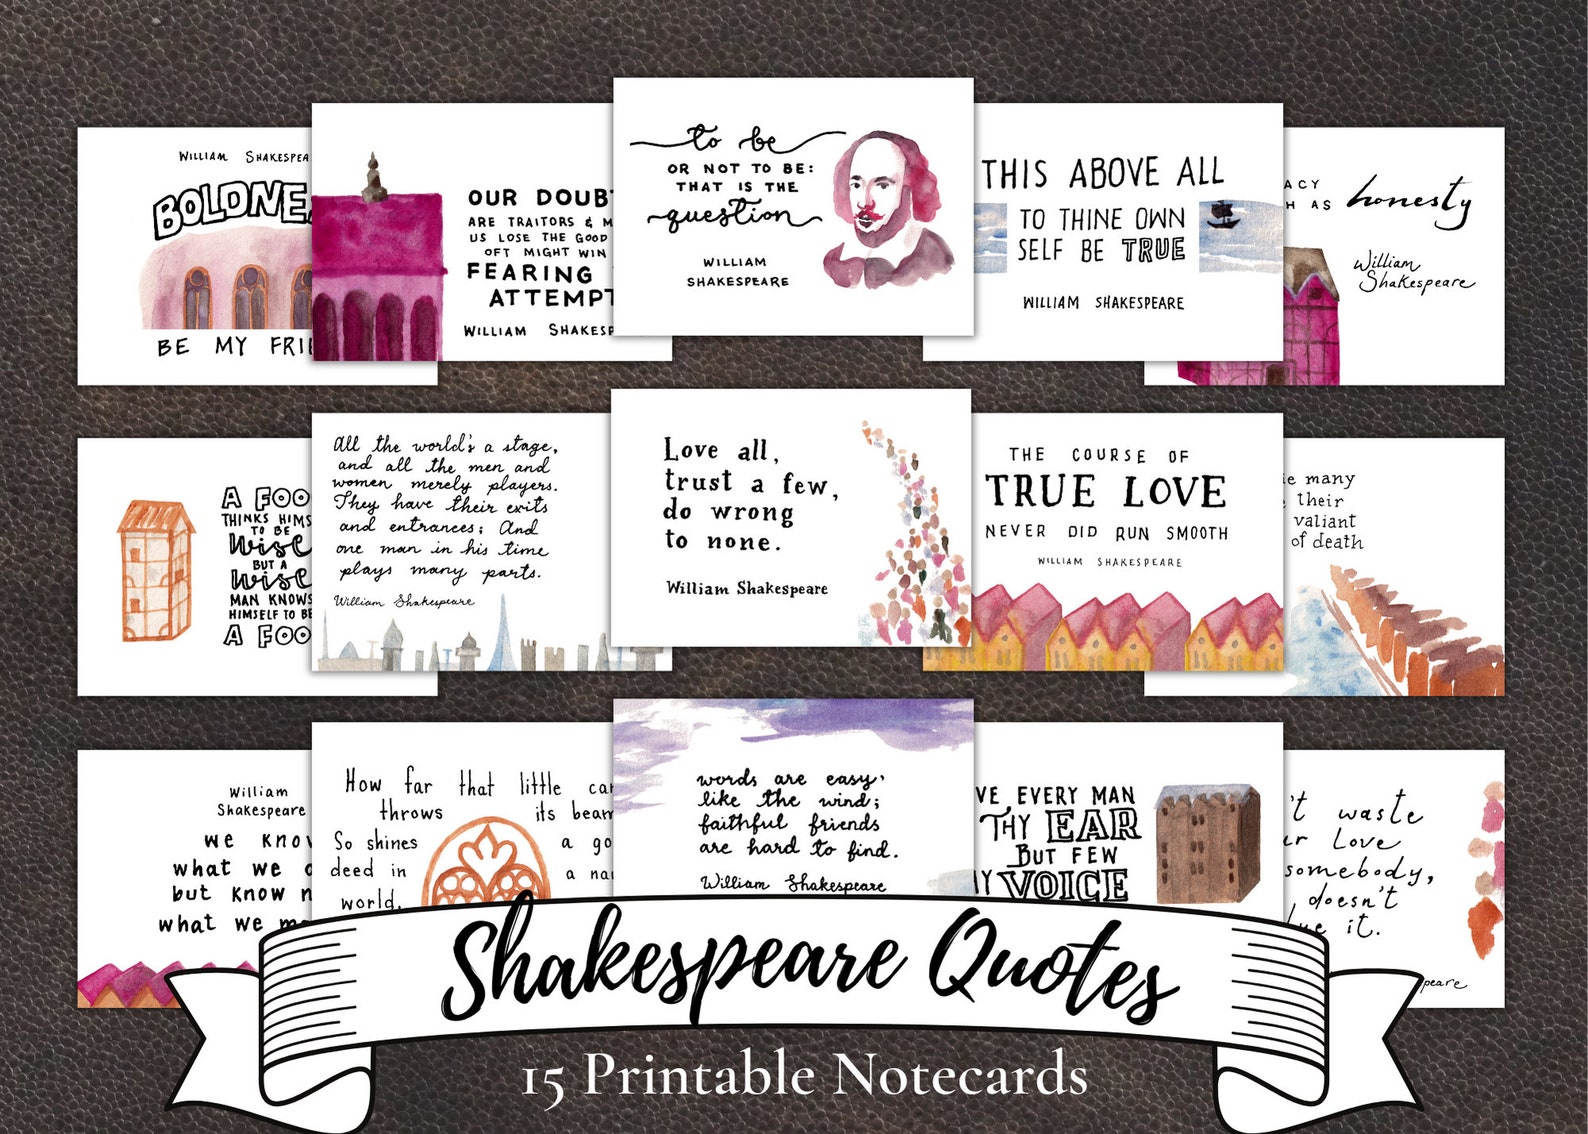 WILLIAM SHAKESPEA
BOLDNE
BE MY FRIE
OUR DOUBT
ARE TRAITORS & M
US LOSE THE GOOD
OFT MIGHT WIN
FEARING
ATTEMPT
WILLIAM SHAKESP
to be
OR NOT TO BE:
THAT IS THE
question
WILLIAM
SHAKESPEARE
THIS ABOVE ALL
TO THINE OWN
SELF BE TRUE
WILLIAM SHAKESPEARE
ACY
H AS honesty
William
Shakespeare
A FOO
THINKS HIMS
TO BE
Wise
BUT A
Wise
MAN KNOWS
HIMSELF TO BE
A FOO
All the world's a stage,
and all the men and
women merely players.
They have their exits
and entrances; And
one man in his time
plays many parts.
William Shakespeare
Love all,
trust a few,
do wrong
to none.
William Shakespeare
THE COURSE OF
TRUE LOVE
NEVER DID RUN SMOOTH
WILLIAM SHAKESPEARE
ie many
their
valiant
of death
William
Shakespeare
we know
what we
but know n
what we m
How far that little can
throws its beam
So shines a go
deed in a na
world.
words are easy,
like the wind;
faithful friends
are hard to find.
William Shakespeare
VE EVERY MAN
THY EAR
BUT FEW
Y VOICE
't waste
ur Love
somebody,
doesn't
ue it.
peare
Shakespeare Quotes
15 Printable Notecards